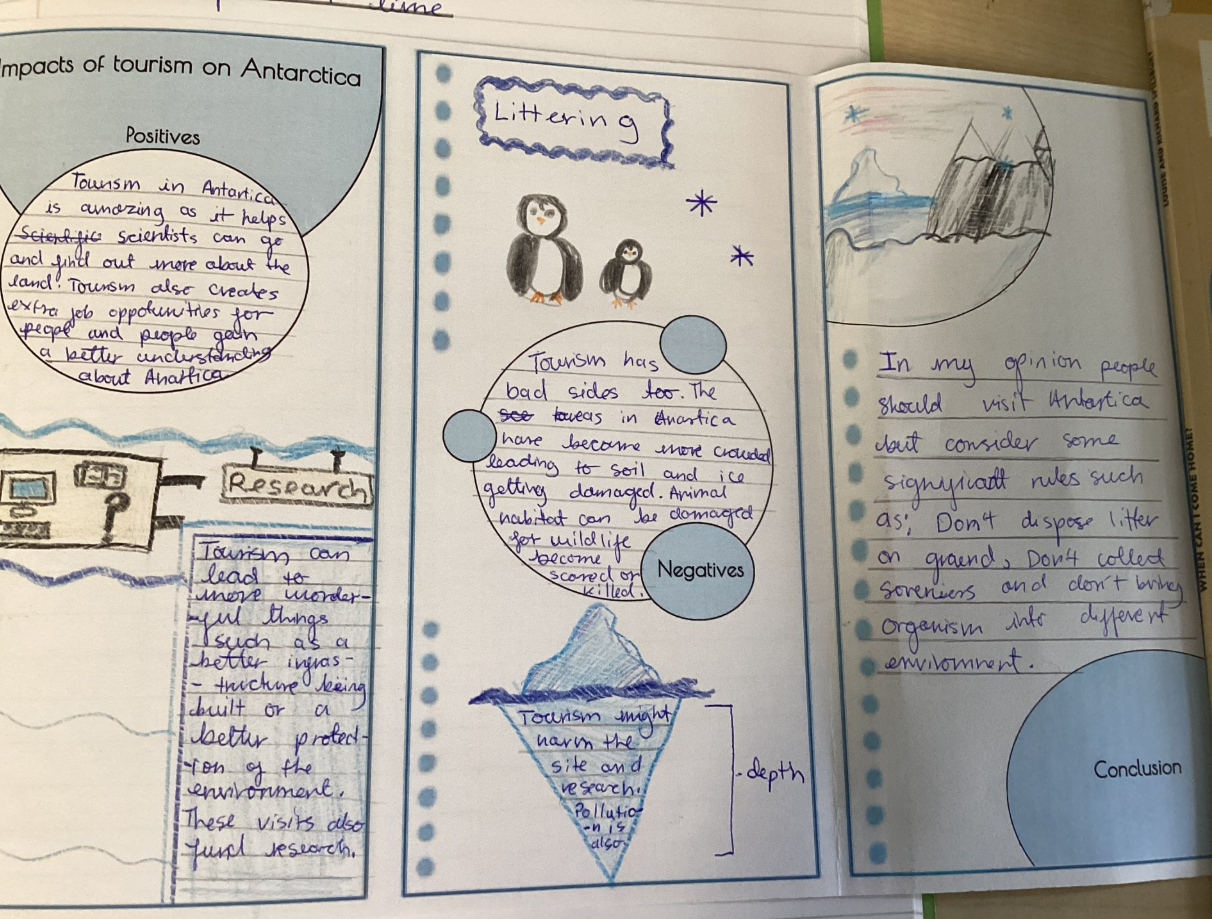 time
Impacts of tourism on Antarctica
Positives
Tourism in Antartica
is amazing as it helps
Scientific scientists can go
and find out more about the
land! Tourism also creates
extra job oppotunities for
peopl and people gain
a better understanding
about Anartica.
Research
Tourism can
lead to
more wonder-
-ful things
such as a
better infras-
- tructure being
built or a
better protect-
-ion of the
environment.
These visits also
fund research.
Littering
Tourism has
bad sides too. The
areas in Anartica
have become more crowded
leading to soil and ice
getting damaged. Animal
habitat can be damaged
for wildlife
become
scared or
killed.
Negatives
Tourism might
harm the
site and
research.
Pollutio-
-n is
also
depth
In my opinion people
should visit Antartica
but consider some
significant rules such
as; Don't dispose litter
on ground, Don't collect
soreniers and don't bring
organism into different
enviromnent.
Conclusion
WHEN CAN I COME HOME?